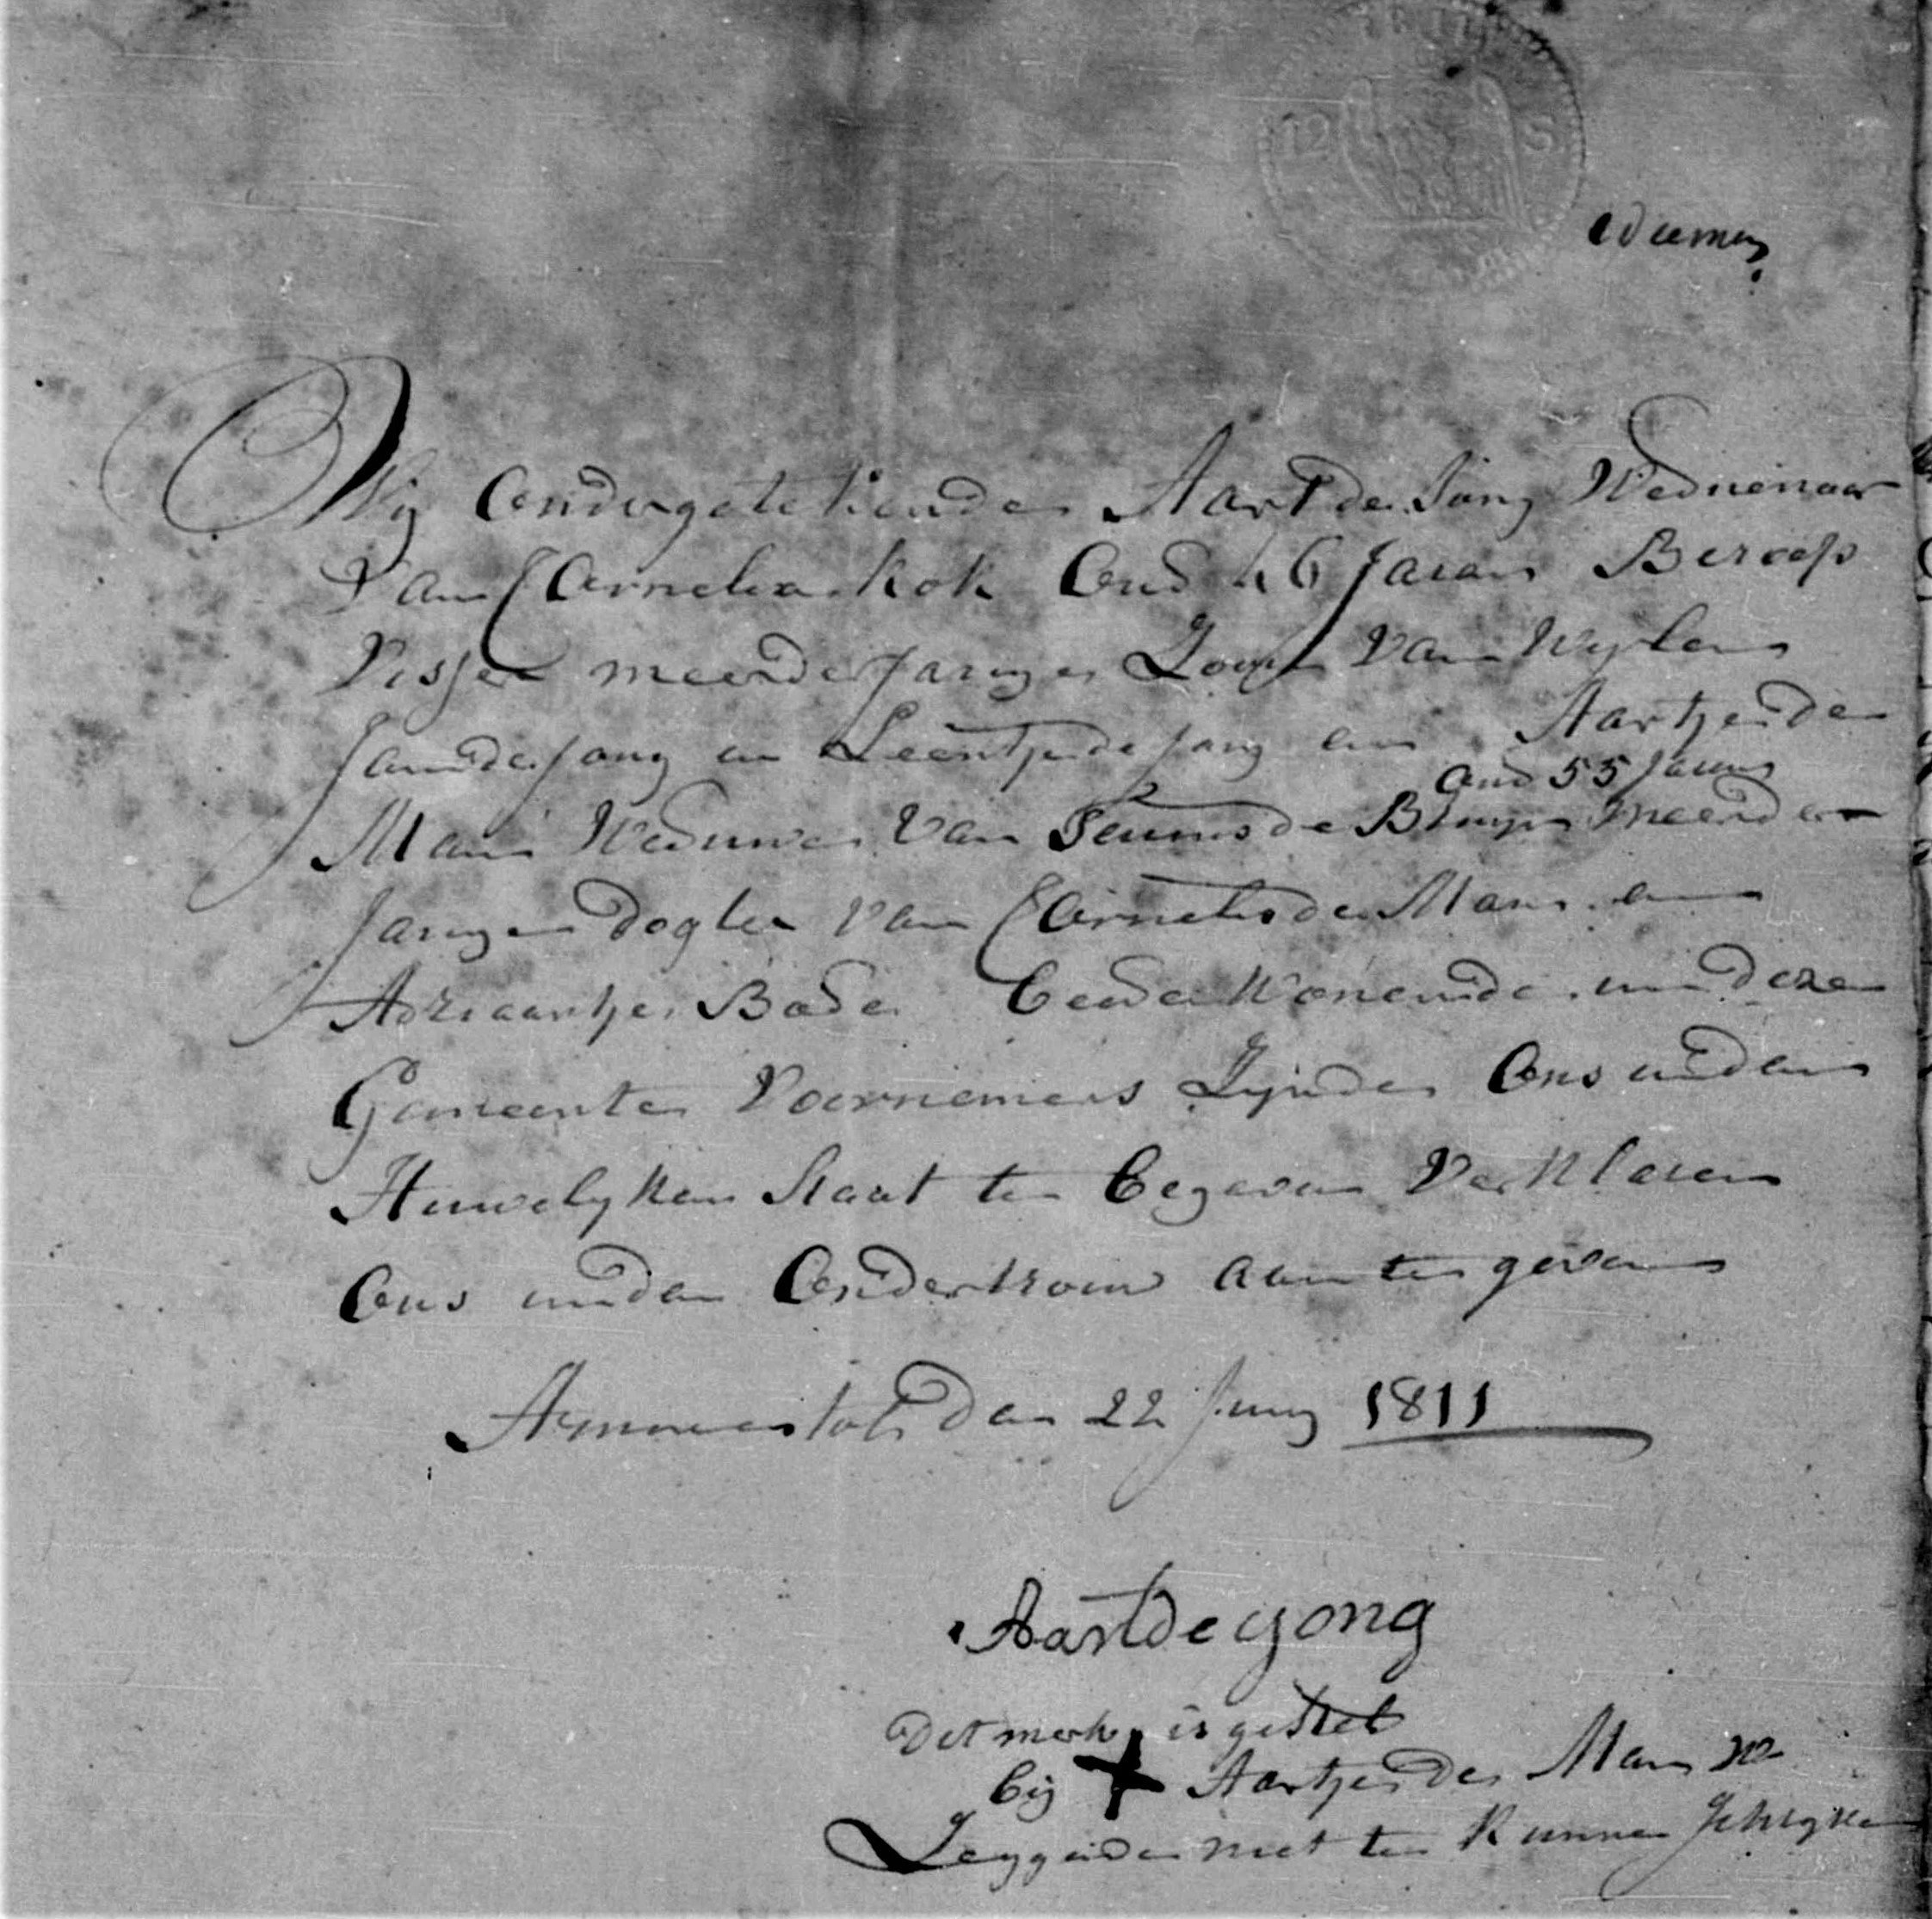 12 S
Wij Ondergetekende Aart de Jong Weduenaar
Van Cornelia Kok Oud 46 Jaren Beroep
Visser meerderjarige Zoon Van Wylen
Jan de Jong en Leentje de Jong en Aartje de
Oud 55 Jaren
Man Weduwe Van Teunis de Bruyn meerder
Jarige Dogter Van Cornelis de Man en
Adriaantje Bade Beede Wonende in deze
Gemeente Voornemens Zynde Ons in den
Huwelyken Staat te Begeven Verklaren
Ons in den Ondertrouw aan te geven
Ammerstol Den 22 Juny 1811
Aart de yong
Dit merk is gestelt
bij + Aartje de Man
Zeggende niet te Kunnen Schryven